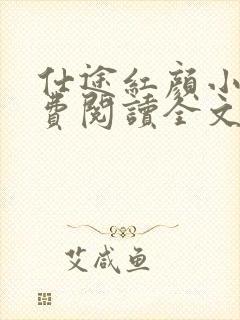 仕途紅顏小
費閱讀全文
艾咸鱼